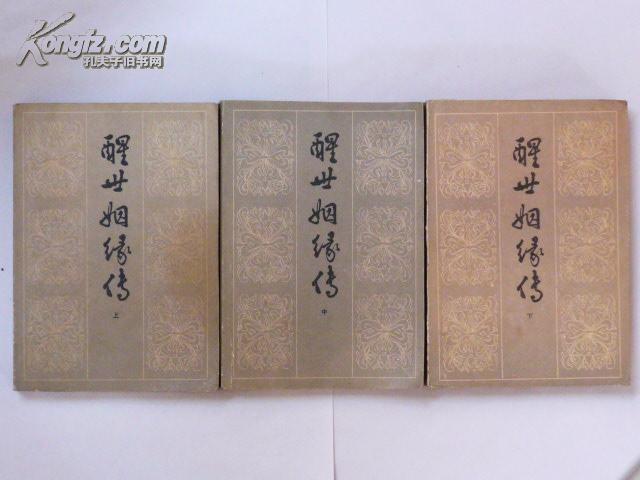 Kongfz.com
孔夫子旧书网
醒世姻缘传
上
醒世姻缘传
中
醒世姻缘传
下